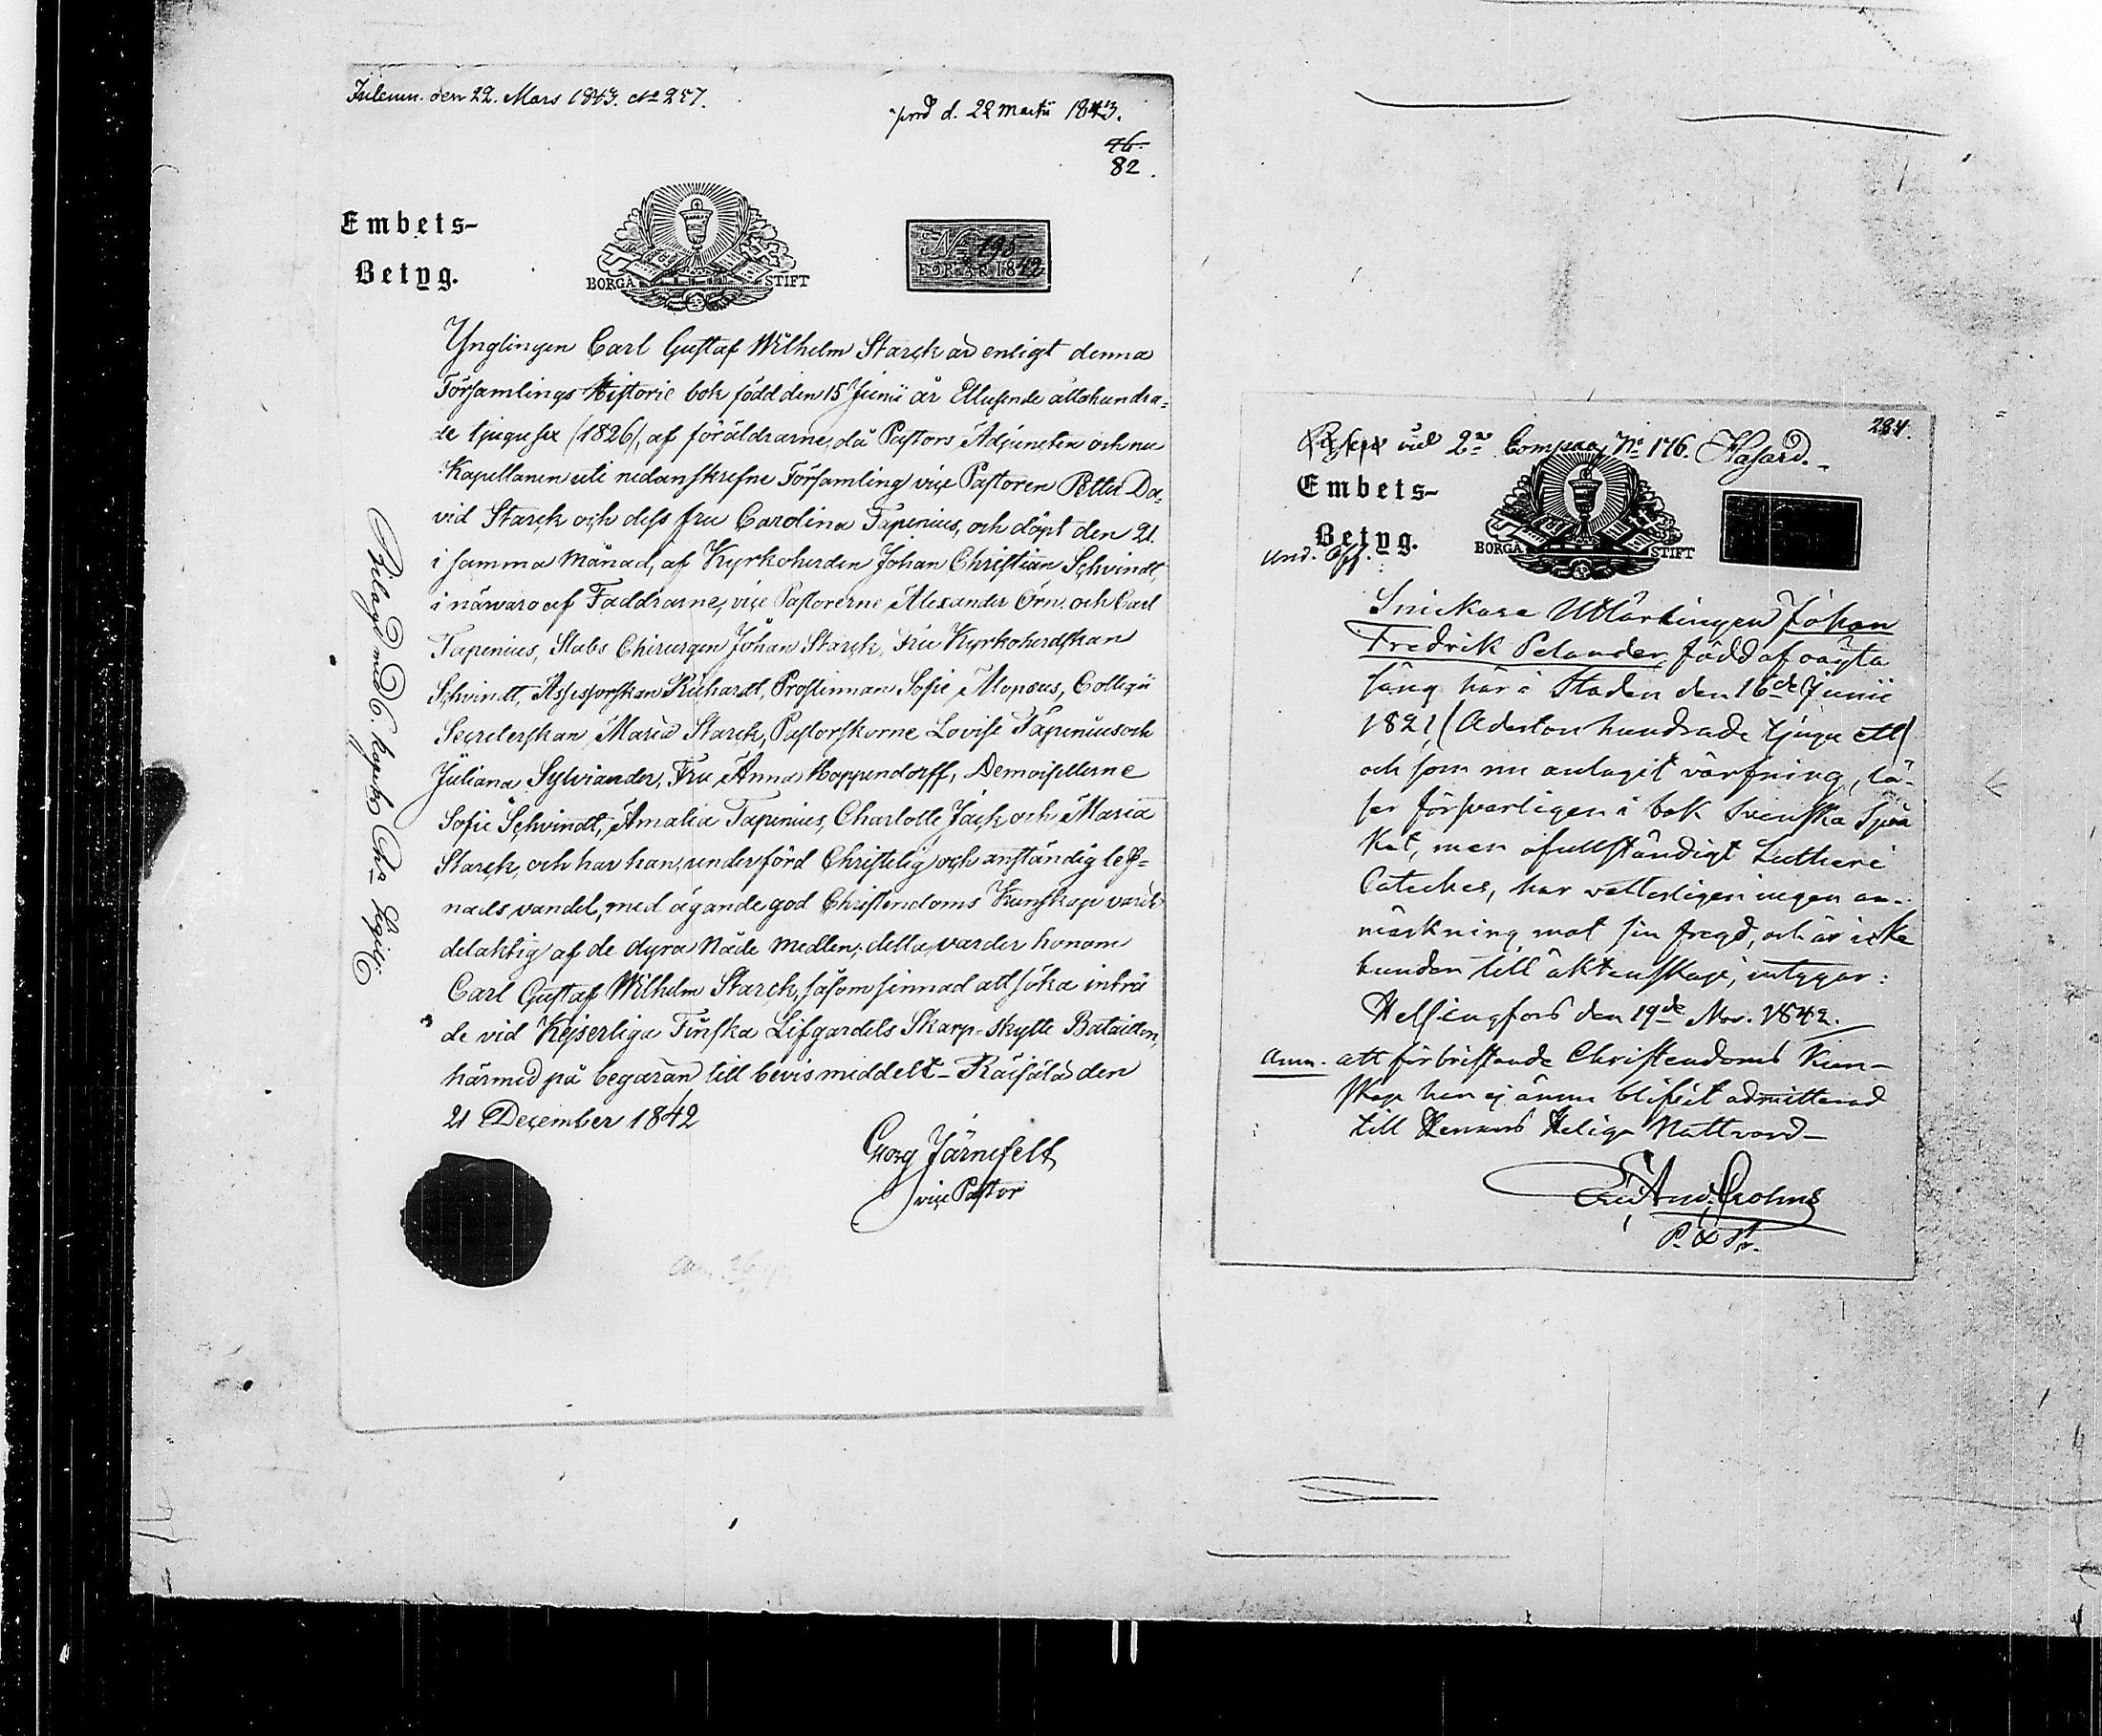 Inlemn. den 22. Mars 1843. No 257.
prod d. 22 Martii 1843.
76.
82.
Embets-
Betyg.
BORGÅ STIFT
No 195
FÖR ÅR 1842
Ynglingen Carl Gustaf Wilhelm Starck är enligt denna
Församlings Historie bok född den 15 Junii år Ettusende åttahundra-
de tjugusex (1826), af föräldrarne, då Pastors Adjuncten och nu
Kapellanen uti nedanskrefne Församling vice Pastoren Petter Da-
vid Starck och dess fru Carolina Tapenius, och döpt den 21.
i samma månad, af Kyrkoherden Johan Christian Schvindt,
i närvaro af Faddrarne, vice Pastorerne Alexander Örn och Carl
Tapenius, Stabs Chirurgen Johan Starck, Fru Kyrkoherdskan
Schvindt, Assessorskan Richardt, Prostinnan Sofie Alopæus, Collegii
Secreterskan Maria Starck, Pastorskorne Lovise Tapenius och
Juliana Sylviander, Fru Anna Hoppendorff, Demoisellerne
Sofie Schvindt, Amalia Tapenius, Charlotte Jack och Maria
Starck, och har han, under förd Christelig och anständig lef-
nads vandel, med ägande god Christendoms Kunskap varit
delaktig af de dyra Nåde medlen; detta varder honom
Carl Gustaf Wilhelm Starck, såsom sinnad att söka inträ
de vid Kejserliga Finska Lifgardets Skarp-skytte Bataillon,
härmed på begäran till bevis meddelt – Räisälä den
21 December 1842
Georg Järnefelt
vice Pastor
Belagt med 6. kopek Cha Sigill.
284.
vid 2a Compag. No 176. Hasard.
Embets-
Betyg.
BORGÅ STIFT
Und. Off.
Snickare Utlärlingen Johan
Fredrik Pelander, född af oägta
säng här i Staden den 16de Junii
1821, (Aderton hundrade tjugu ett)
och som nu antagit värfning, lä-
ser försvarligen i bok Svenska Språ
ket, men ofullständigt Lutheri
Cateches, har vetterligen ingen an-
märkning mot sin frejd, och är icke
bunden till äktenskap, intygar:
Helsingfors den 19de Nov. 1842.
Anm. att för bristande Christendoms Kun-
skap han ej ännu blifvit admitterad
till Herrans Heliga Nattvard –
Crohns
P. &